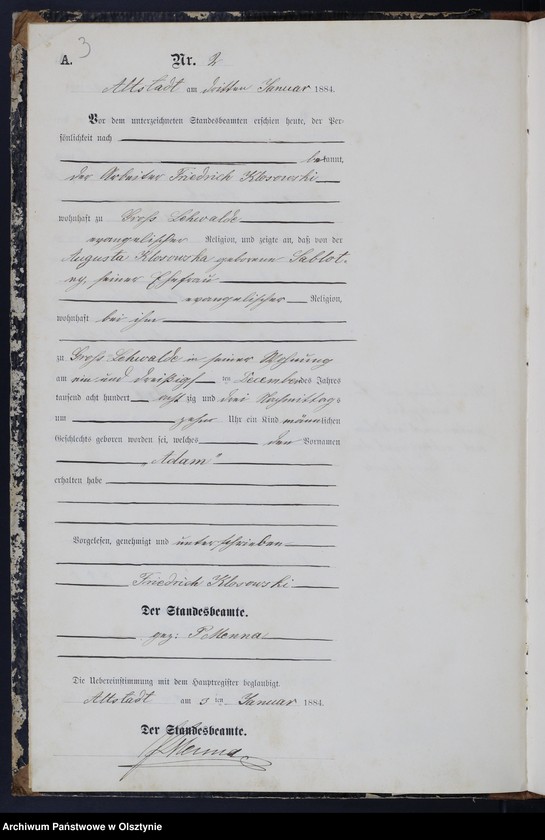 3
A. Nr. 2
Altstadt am dritten Januar 1884.
Vor dem unterzeichneten Standesbeamten erschien heute, der Per-
sönlichkeit nach
bekannt,
der Arbeiter Friedrich Klosowski
wohnhaft zu Gross Lehwalde
evangelischer Religion, und zeigte an, daß von der
Augusta Klosowska geborene Sablot-
ny, seiner Ehefrau
evangelischer Religion,
wohnhaft bei ihm
zu Gross Lehwalde in seiner Wohnung
am ein und dreißigst ten December des Jahres
tausend acht hundert acht zig und drei Nachmittags
um zehn Uhr ein Kind männlichen
Geschlechts geboren worden sei, welches den Vornamen
„Adam"
erhalten habe
Vorgelesen, genehmigt und unterschrieben
Friedrich Klosowski
Der Standesbeamte.
gez: Menna
Die Uebereinstimmung mit dem Hauptregister beglaubigt.
Altstadt am 3 ten Januar 1884.
Der Standesbeamte.
Menna
Archiwum Państwowe w Olsztynie